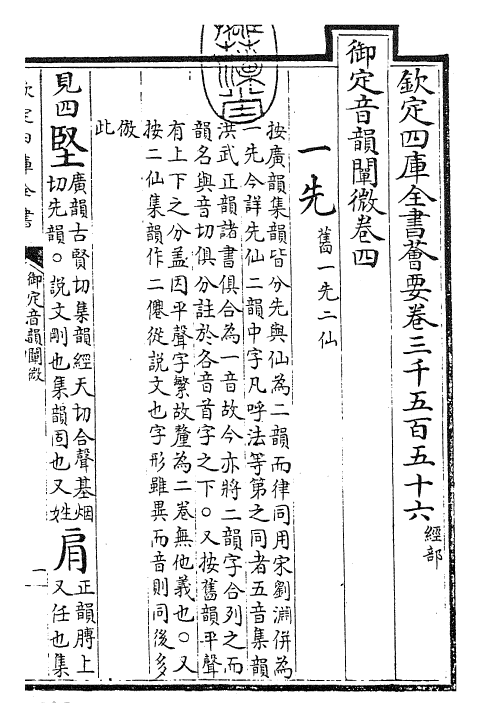 欽定四庫全書薈要卷三千五百五十六 經部
御定音韻闡微卷四
一先 舊一先二仙
按廣韻集韻皆分先與仙為二韻而律同用宋劉淵併為
一先今詳先仙二韻中字凡呼法等第之同者五音集韻
洪武正韻諸書俱合為一音故今亦將二韻字合列之而
韻名與音切俱分註於各音首字之下○又按舊韻平聲
有上下之分盖因平聲字繁故釐為二卷無他義也○又
按二仙集韻作二僊從說文也字形雖異而音則同後多
倣
此
見四 堅 廣韻古賢切集韻經天切合聲基烟
切先韻○說文剛也集韻固也又姓
肩 正韻膊上
又任也集
欽定四庫全書
御定音韻闡微
一